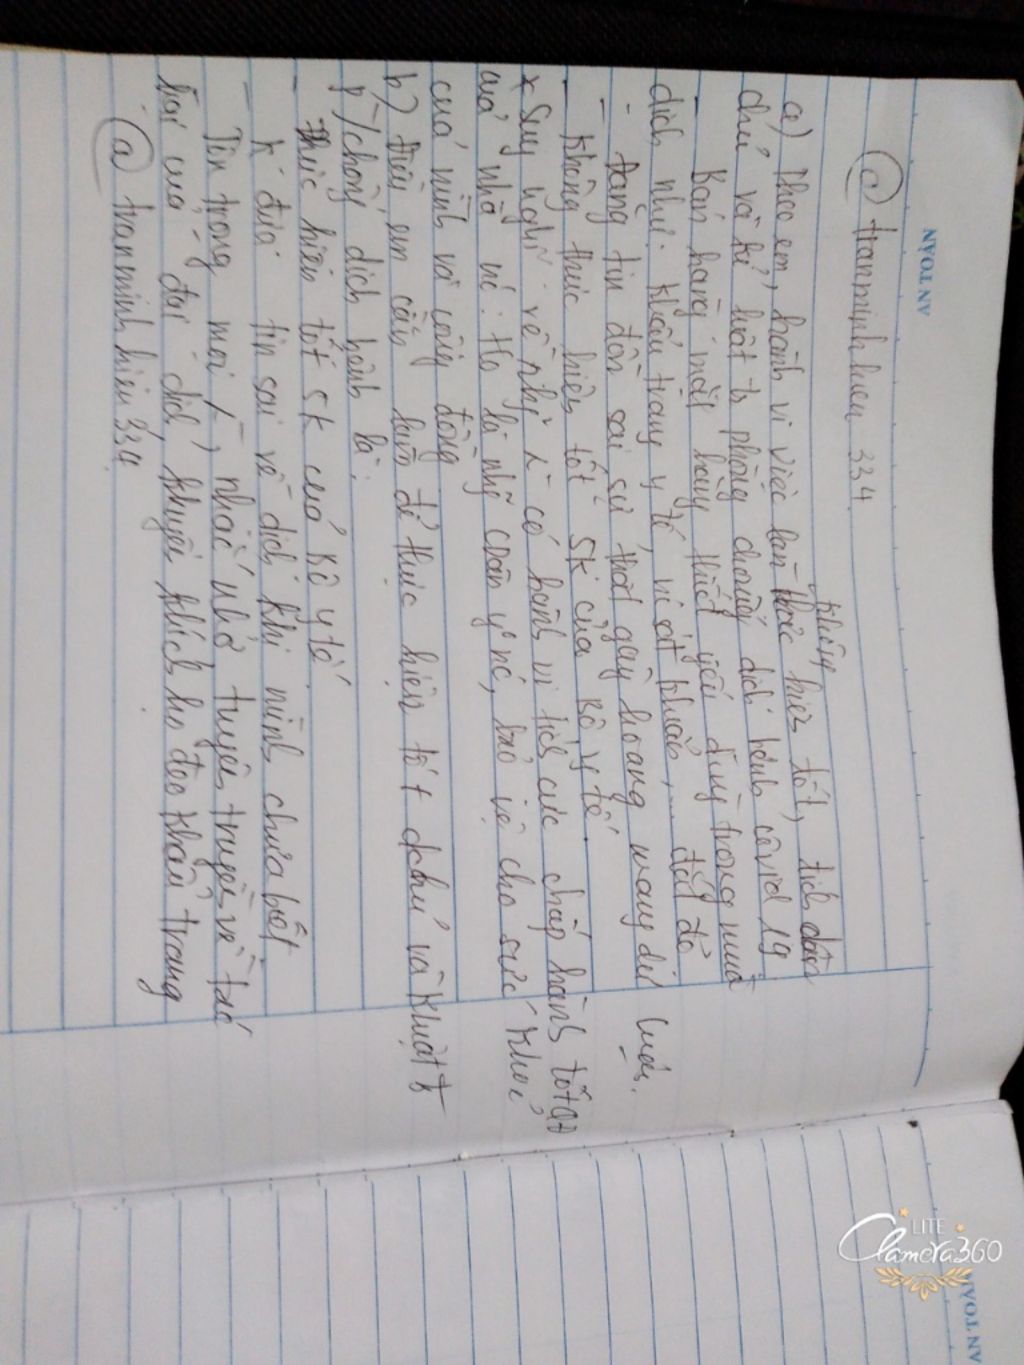 AN TOÀN
@ tranminhhieu 334
a) Theo em, hành vi việc làm không thực hiện tốt, tích dân
chủ và kỉ luật tr phòng chống dịch bệnh côvid 19
- Bán hàng mặt hàng thiết yếu dùng trong mùa
dịch như: khẩu trang y tế, nc sát khuẩn,... đắt đỏ
- Đăng tin đồn sai sự thật gây hoang mang dư luận.
- Không thực hiện tốt 5k của Bộ y tế
* Suy nghĩ về nhữ có hành vi tích cực chấp hành tốt
của nhà nc: Họ là nhữ công nc, bảo vệ cho sức khoẻ
của mình và cộng đồng
b) Điều em cần làm để thực hiện tốt dchủ và kluật tr
p/chống dịch bệnh là:
- Thực hiện tốt 5k của Bộ y tế
- K đưa tin sai về dịch khi mình chưa biết
- Tôn trọng mọi, nhắc nhở tuyên truyền về tác
hại của đại dịch, khuyến khích họ đeo khẩu trang
@ tranminhhieu 334
LITE
Camera360
AN TOÀN